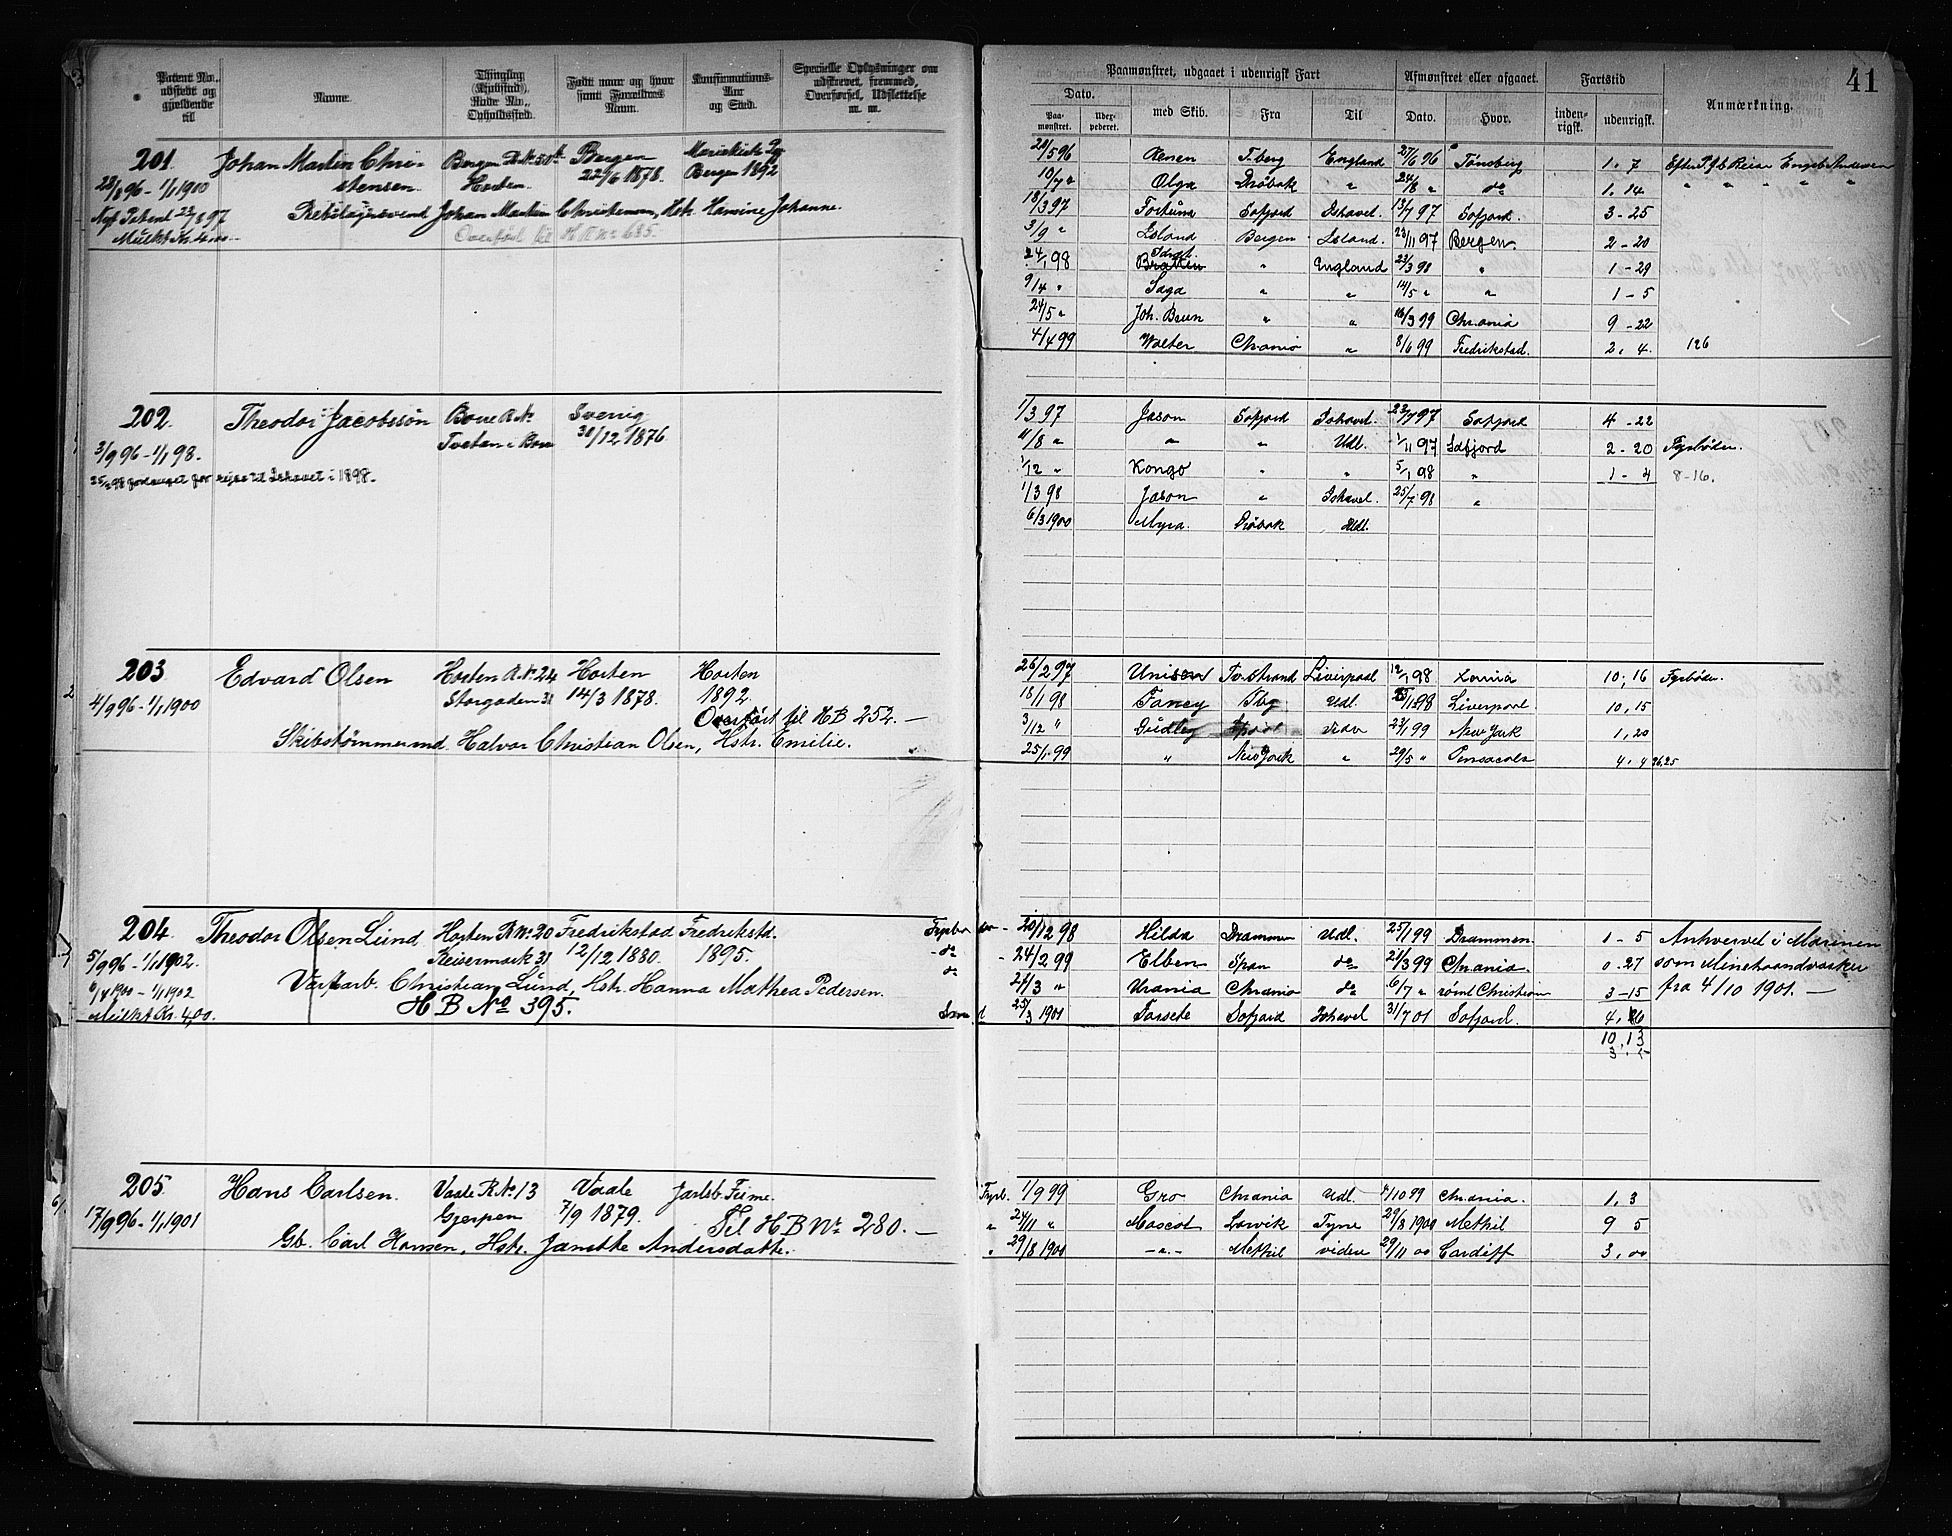 Patent No., udstedt og gjældende til
Navne.
Thinglag (Kjøbstad) Rode No., Opholdssted.
Født naar og hvor samt Forældres Navn.
Konfirmations- Aar og Sted.
Specielle Oplysninger om udskrevet, fremmed, Overførsel, Udslettelse m. m.
201 Johan Martin Chri- Bergen Bergen
28/5 96 - 1/1 1900 stensen. Horten. 22/6 1878. Bergen 1892
Nyt Patent 22/8 97 Johan Martin Christensen, Hstr. Hansine Johanne.
Mulkt Kr. 4,00
Overført til H B No 685.
202. Theodor Jacobssön Borre R. No Sverrig
3/9 96 - 1/1 98. Borre 30/12 1876
Ishavet i 1898.
203 Edvard Olsen Horten R. No 24 Horten Horten
4/9 96 - 1/1 1900 Storgaden 31 14/3 1878. 1892
Overført til H B 252. —
Skibstømmermd. Halvor Christian Olsen, Hstr. Emilie.
204. Theodor Olsen Lund Horten R No 20 Fredrikstad Fredrikstd.
5/9 96 - 1/1 1902. Keisermark 31 12/12 1880. 1895.
6/4 1900 - 1/1 1902 Christian Lund, Hstr. Hanna Mathea Pedersen.
Mulkt Kr. 4,00.
H B No 395.
205. Hans Carlsen. Vaale R. No 13 Vaale Jarlsb.
17/9 96 - 1/1 1901 Gjerpen 7/9 1879. Til H B Nr 280. —
Gb. Carl Hansen, Hstr. Janette Andersdatter.
41
Paamønstret, udgaaet i udenrigsk Fart
Afmønstret eller afgaaet.
Fartstid
Anmærkning.
Dato.
Paa- mønstret. Udex- pederet. med Skib. Fra Til Dato. Hvor. inden- rigsk. udenrigsk.
28/5 96 T.berg England 27/6 96 Tönsberg 1. 7
10/7 " Olga Dröbak " 24/8 " do 1, 14 " " " " "
18/3 97 Fortuna Sofjord Ishavet. 13/7 97 Sofjord. 3 - 25
3/9 " Island Bergen Island. 23/11 97 Bergen 2 - 20
24/1 98 " England 23/3 98 " 1 - 29
9/4 " Saga " " 14/5 " " 1 - 5
24/5 " Joh. Brun " " 16/3 99 Chr.ania 9 - 22
4/4 99 Walter Chrania " 8/6 99 Fredrikstad. 2, 4. 126
1/3 97 Jason Sofjord Ishavet. 22/7 97 Sofjord 4 - 22
11/8 " " " Udl. 1/11 97 Sofjord 2 - 20 Fyrböder.
1/12 " Kongo " " 5/1 98 " 1 - 4 8-16.
1/3 98 Jason " Ishavet. 25/7 98 "
6/3 1900 Myra. Dröbak Udl.
26/2 97 Liverpool 12/1 98 10, 16 Fyrböder.
18/1 98 Fancy Tbg Udl. Liverpool 10, 15
3/12 " Dudley 23/1 99 New York 1, 20
25/1 99 " New York " 29/5 " Pensacola 4. 4 26.25
20/12 98 Hilda Drammen Udl. 25/1 99 Drammen. 1 - 5 Anhvervet i Marinen
do 24/2 99 Elben do 21/3 99 Chrania. 0. 27 som Minehaandværker
do 24/3 " Urania Chrania do 6/7 " römt Christian 3 - 15 fra 4/10 1901. —
25/3 1901 Forsete Sofjord Ishavet 31/7 01 Sofjord. 4, 6
10, 13
Fyrb. 1/9 99 Gro Chrania Udl. 4/10 99 Chrania. 1, 3
" 24/11 " Mascot Larvik Tyne 29/8 1900 Methil 9 5
" 29/8 1900 - " - Methil videre 29/11 00 Cardiff 3, 00